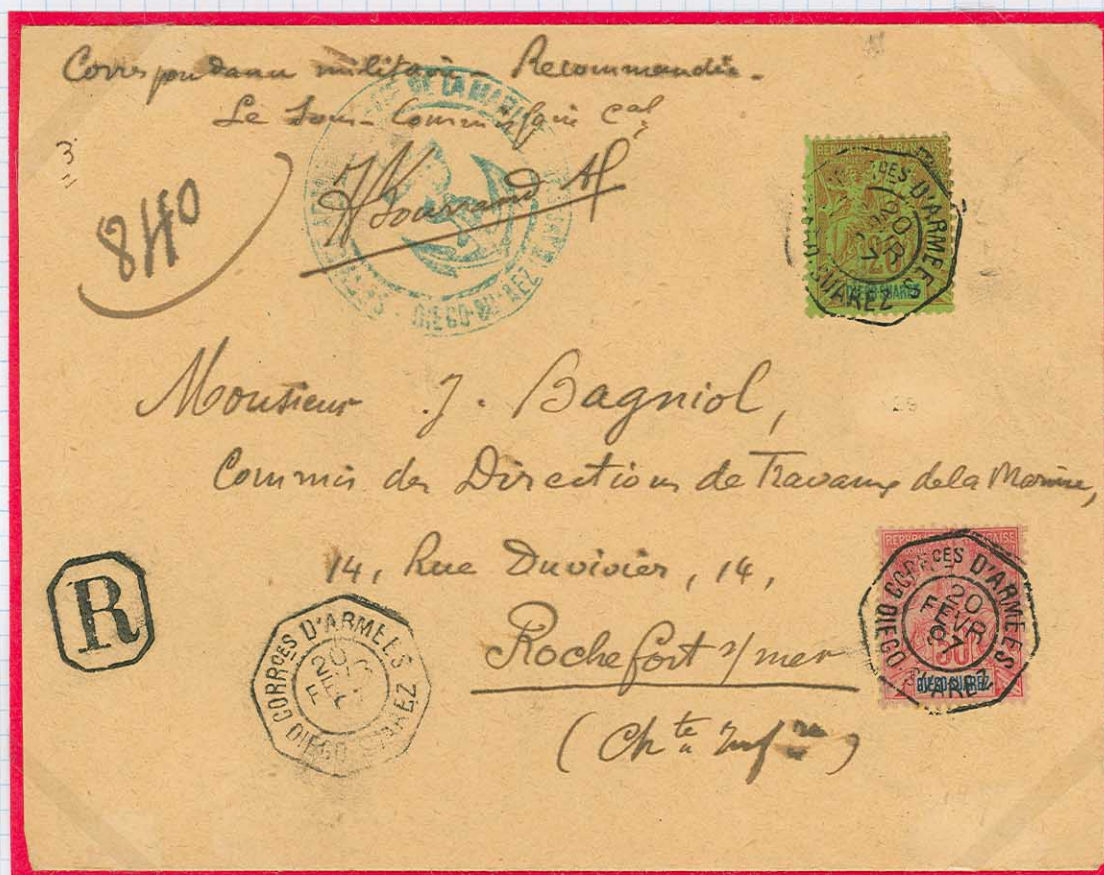 Correspondance militaire - Recommandée -
Le Sous-Commissaire
840
SERVICES ADMINISTRATIFS DE LA MARINE DIEGO-SUAREZ
REPUBLIQUE FRANÇAISE
20
DIEGO-SUAREZ
CORR.CES D'ARMEES
20 FEVR 97
DIEGO SUAREZ
Monsieur J. Bagniol,
Commis des Directions de Travaux de la Marine,
14, Rue Duvivier, 14,
Rochefort s/mer
(Ch.te Inf.re)
R
CORR.CES D'ARMEES
20 FEVR
DIEGO-SUAREZ
REPUBLIQUE FRANÇAISE
50
DIEGO-SUAREZ
CORR.CES D'ARMEES
20 FEVR 97
DIEGO SUAREZ